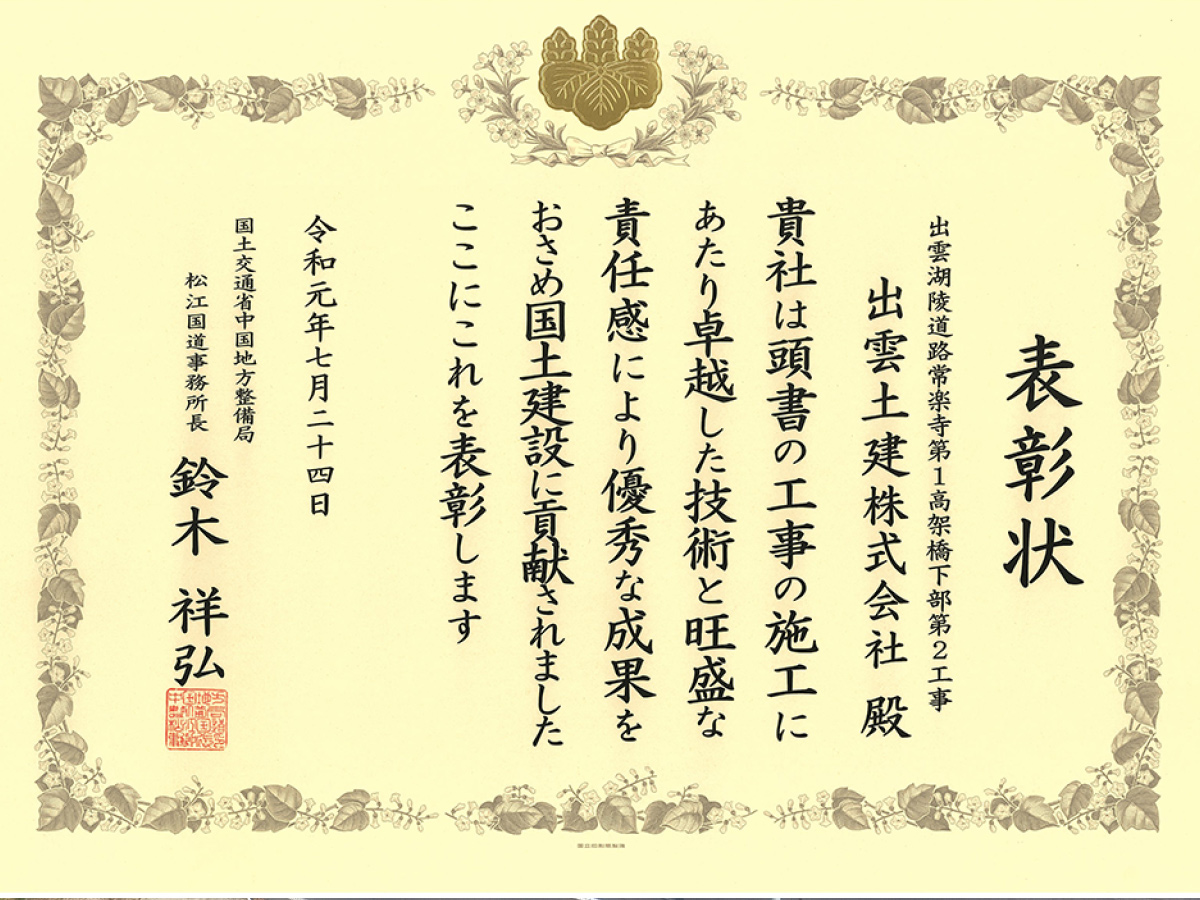 表彰状
出雲湖陵道路常楽寺第1高架橋下部第2工事
出雲土建株式会社 殿
貴社は頭書の工事の施工に
あたり卓越した技術と旺盛な
責任感により優秀な成果を
おさめ国土建設に貢献されました
ここにこれを表彰します
令和元年七月二十四日
国土交通省中国地方整備局
松江国道事務所長
鈴木 祥弘